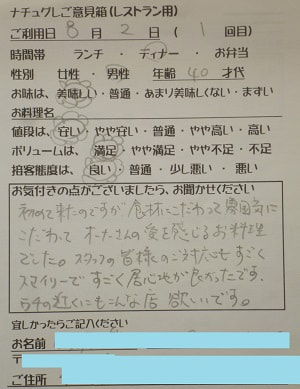 ナチュグレご意見箱(レストラン用)
ご利用日 8 月 2 日 ( 1 回目)
時間帯 ランチ ・ ディナー ・ お弁当
性別 女性 ・ 男性 年齢 40 才代
お味は、美味しい・普通・あまり美味しくない・まずい
お料理名
値段は、安い・やや安い・普通・やや高い・高い
ボリュームは、満足・やや満足・やや不足・不足
接客態度は、良い・普通・少し悪い・悪い
お気付きの点がございましたら、お聞かせください
初めて来たのですが食材にこだわって雰囲気に
こだわって オーナーさんの愛を感じるお料理
でした。スタッフの皆様のご対応もすごく
スマイリーですごく居心地が良かったです。
ウチの近くにもこんな店 欲しいです。
宜しかったらご記入ください
お名前
〒
ご住所